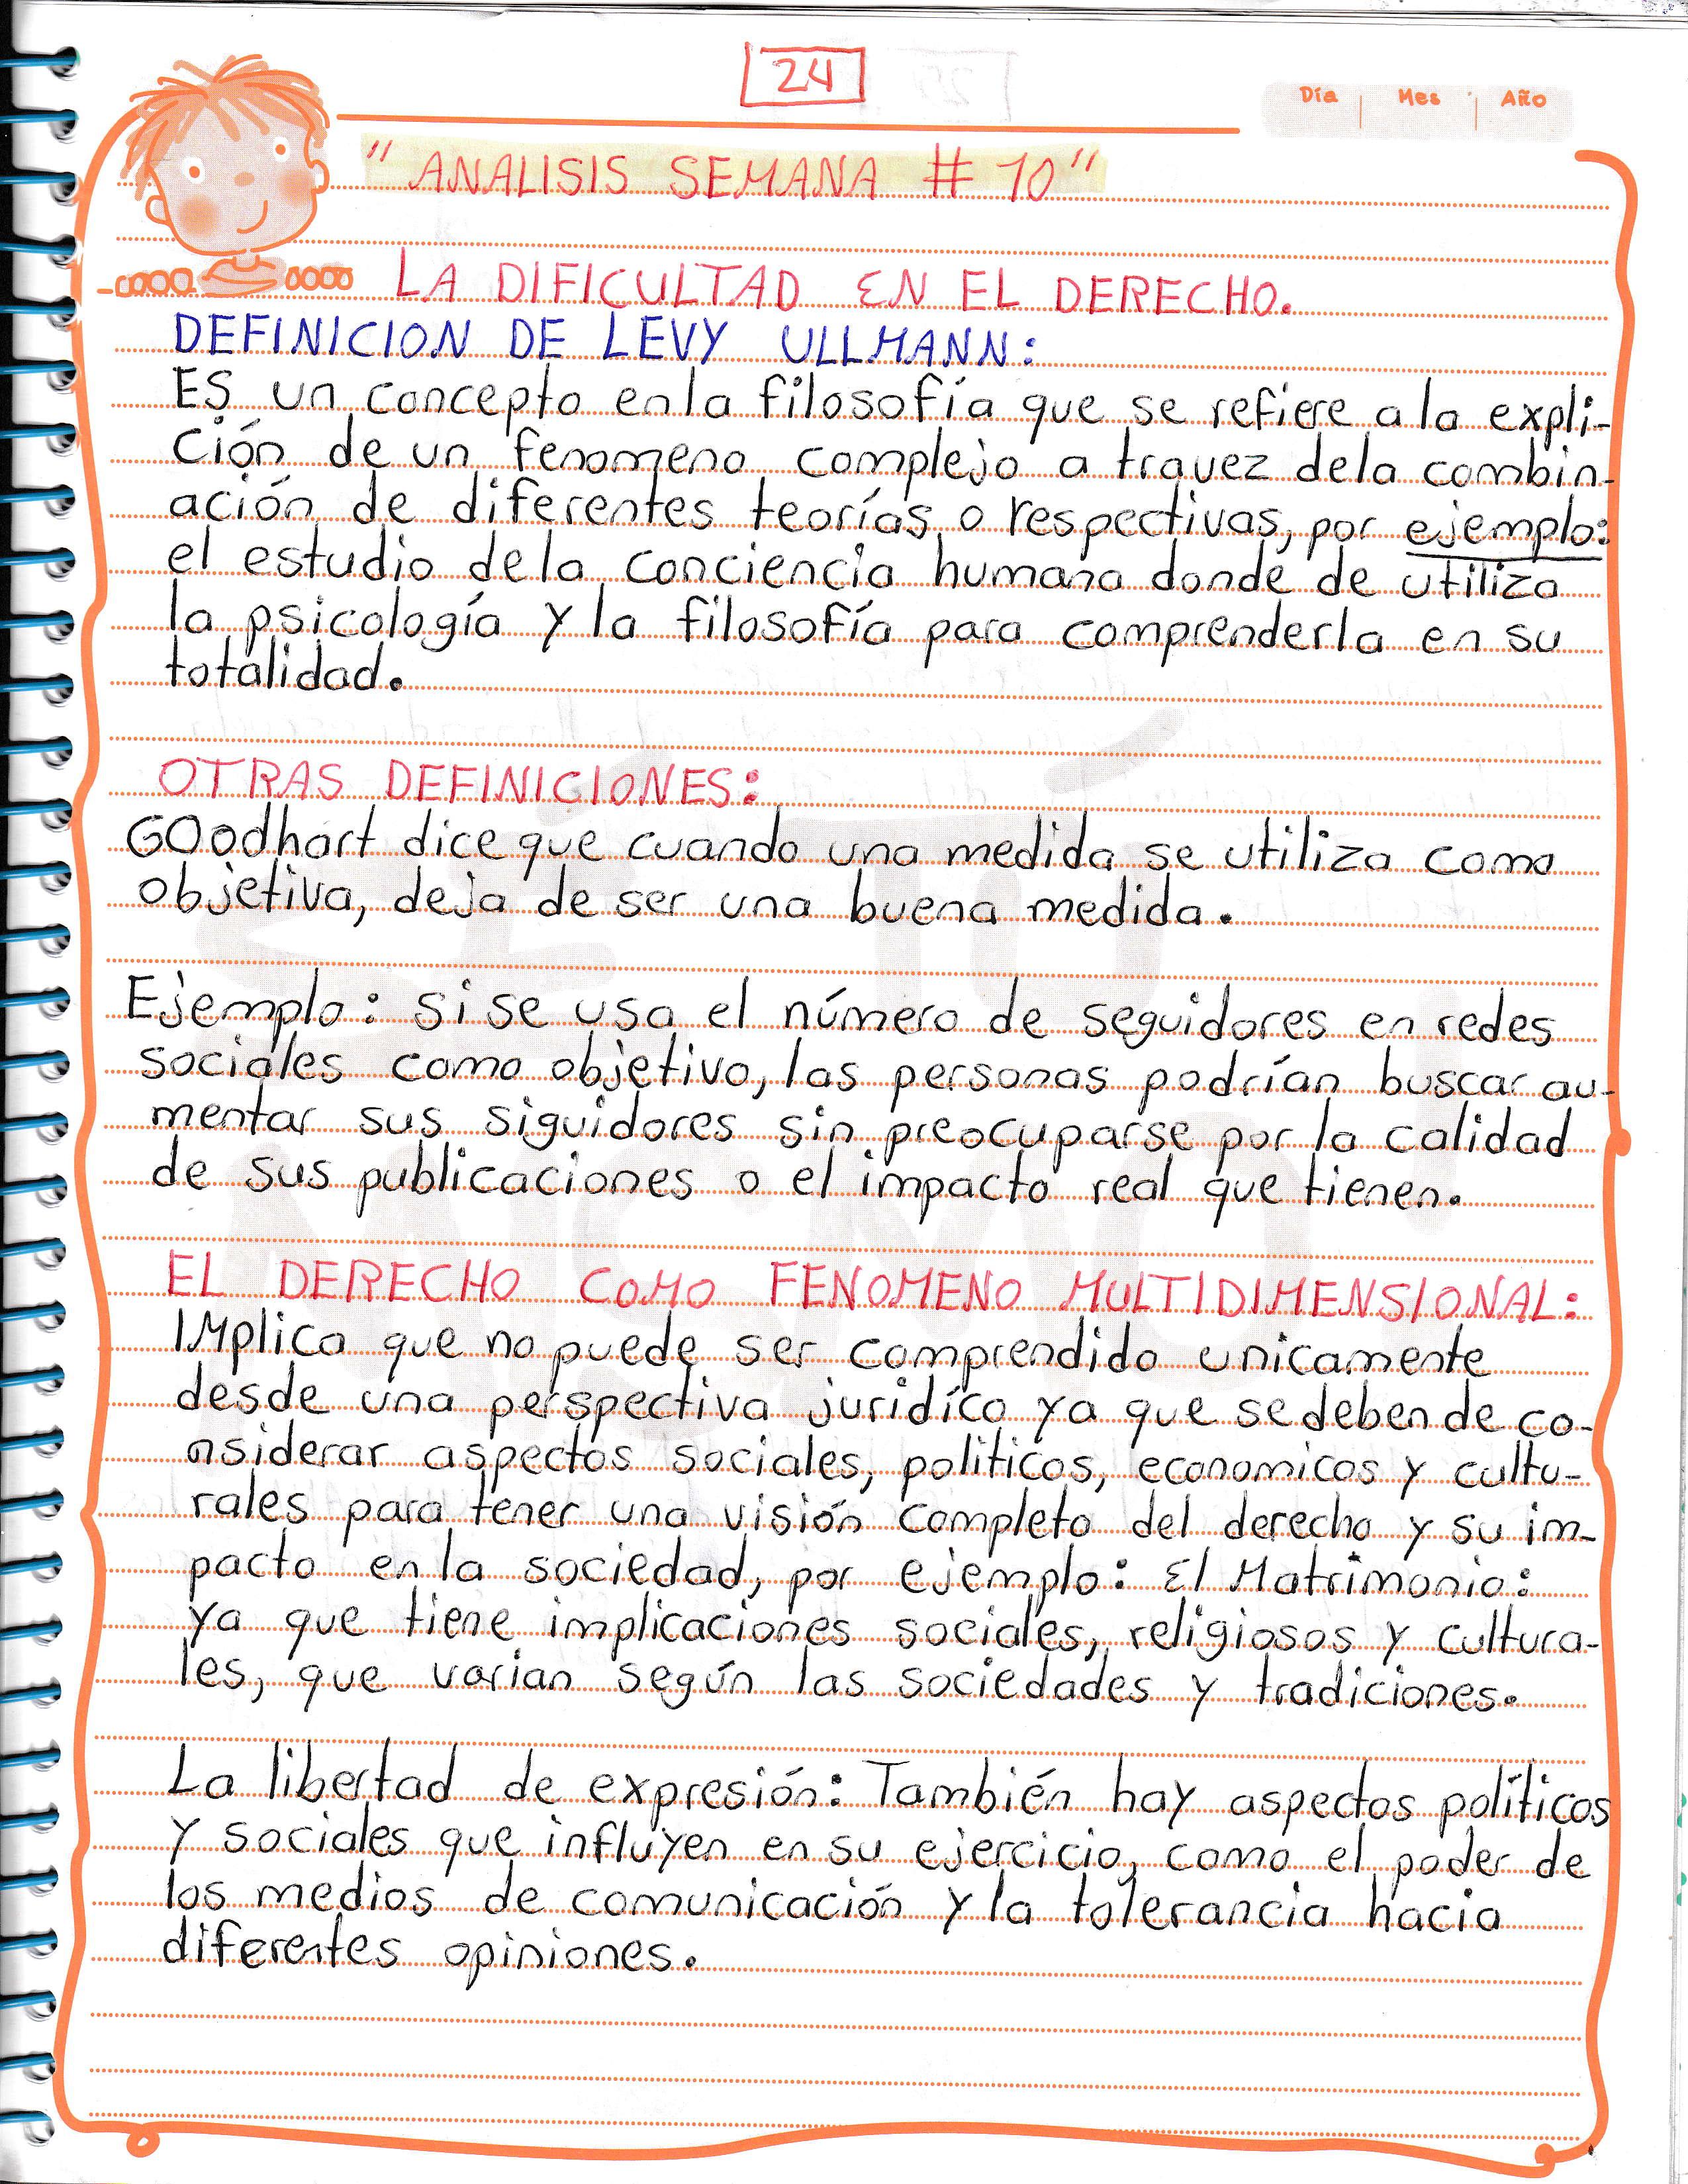 24
Día Mes Año
"ANALISIS SEMANA # 10"
LA DIFICULTAD EN EL DERECHO.
DEFINICION DE LEVY ULLMANN:
ES un concepto en la filosofía que se refiere a la expli-
ción de un fenomeno complejo a travez de la combin-
ación de diferentes teorías o respectivas, por ejemplo:
el estudio de la conciencia humana donde de utiliza
la psicología y la filosofía para comprenderla en su
totalidad.
OTRAS DEFINICIONES:
GOodhart dice que cuando una medida se utiliza como
objetiva, deja de ser una buena medida.
Ejemplo: si se usa el número de seguidores en redes
sociales como objetivo, las personas podrían buscar au-
mentar sus siguidores sin preocuparse por la calidad
de sus publicaciones o el impacto real que tienen.
EL DERECHO COMO FENOMENO MULTIDIMENSIONAL:
IMplica que no puede ser comprendido unicamente
desde una perspectiva juridíca ya que se deben de co-
nsiderar aspectos sociales, politicos, economicos y cultu-
rales para tener una visión completa del derecho y su im-
pacto en la sociedad, por ejemplo: El Matrimonio:
ya que tiene implicaciones sociales, religiosos y cultura-
les, que varian según las sociedades y tradiciones.
La libertad de expresión: También hay aspectos políticos
y sociales que influyen en su ejercicio, como el poder de
los medios de comunicación y la tolerancia hacia
diferentes opiniones.